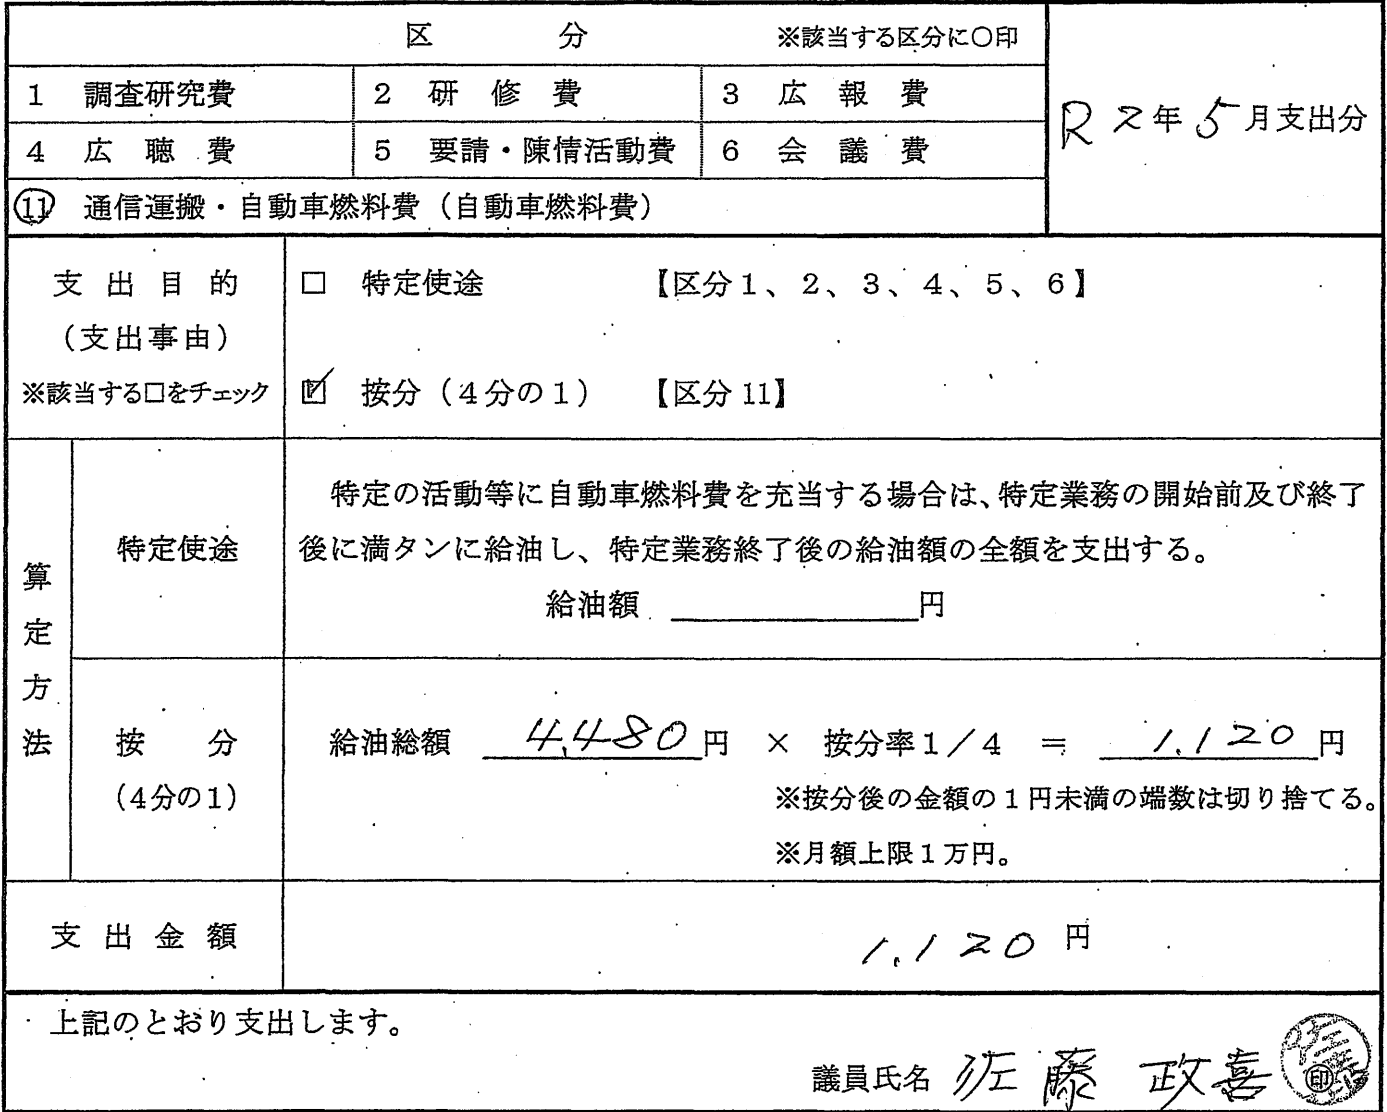 区　　　　分　　　　※該当する区分に○印
R2年5月支出分
1　調査研究費　2　研　修　費　3　広　報　費
4　広　聴　費　5　要請・陳情活動費　6　会　議　費
⑪　通信運搬・自動車燃料費（自動車燃料費）
支 出 目 的
（支出事由）
※該当する□をチェック
□　特定使途　　　【区分1、2、3、4、5、6】
☑　按分（4分の1）　【区分11】
算定方法
特定使途
特定の活動等に自動車燃料費を充当する場合は、特定業務の開始前及び終了
後に満タンに給油し、特定業務終了後の給油額の全額を支出する。
給油額　　　　　　円
按　　分
（4分の1）
給油総額　4,480円　×　按分率1／4　＝　1,120円
※按分後の金額の1円未満の端数は切り捨てる。
※月額上限1万円。
支 出 金 額　　1,120 円
上記のとおり支出します。
議員氏名　佐藤　政喜　㊞